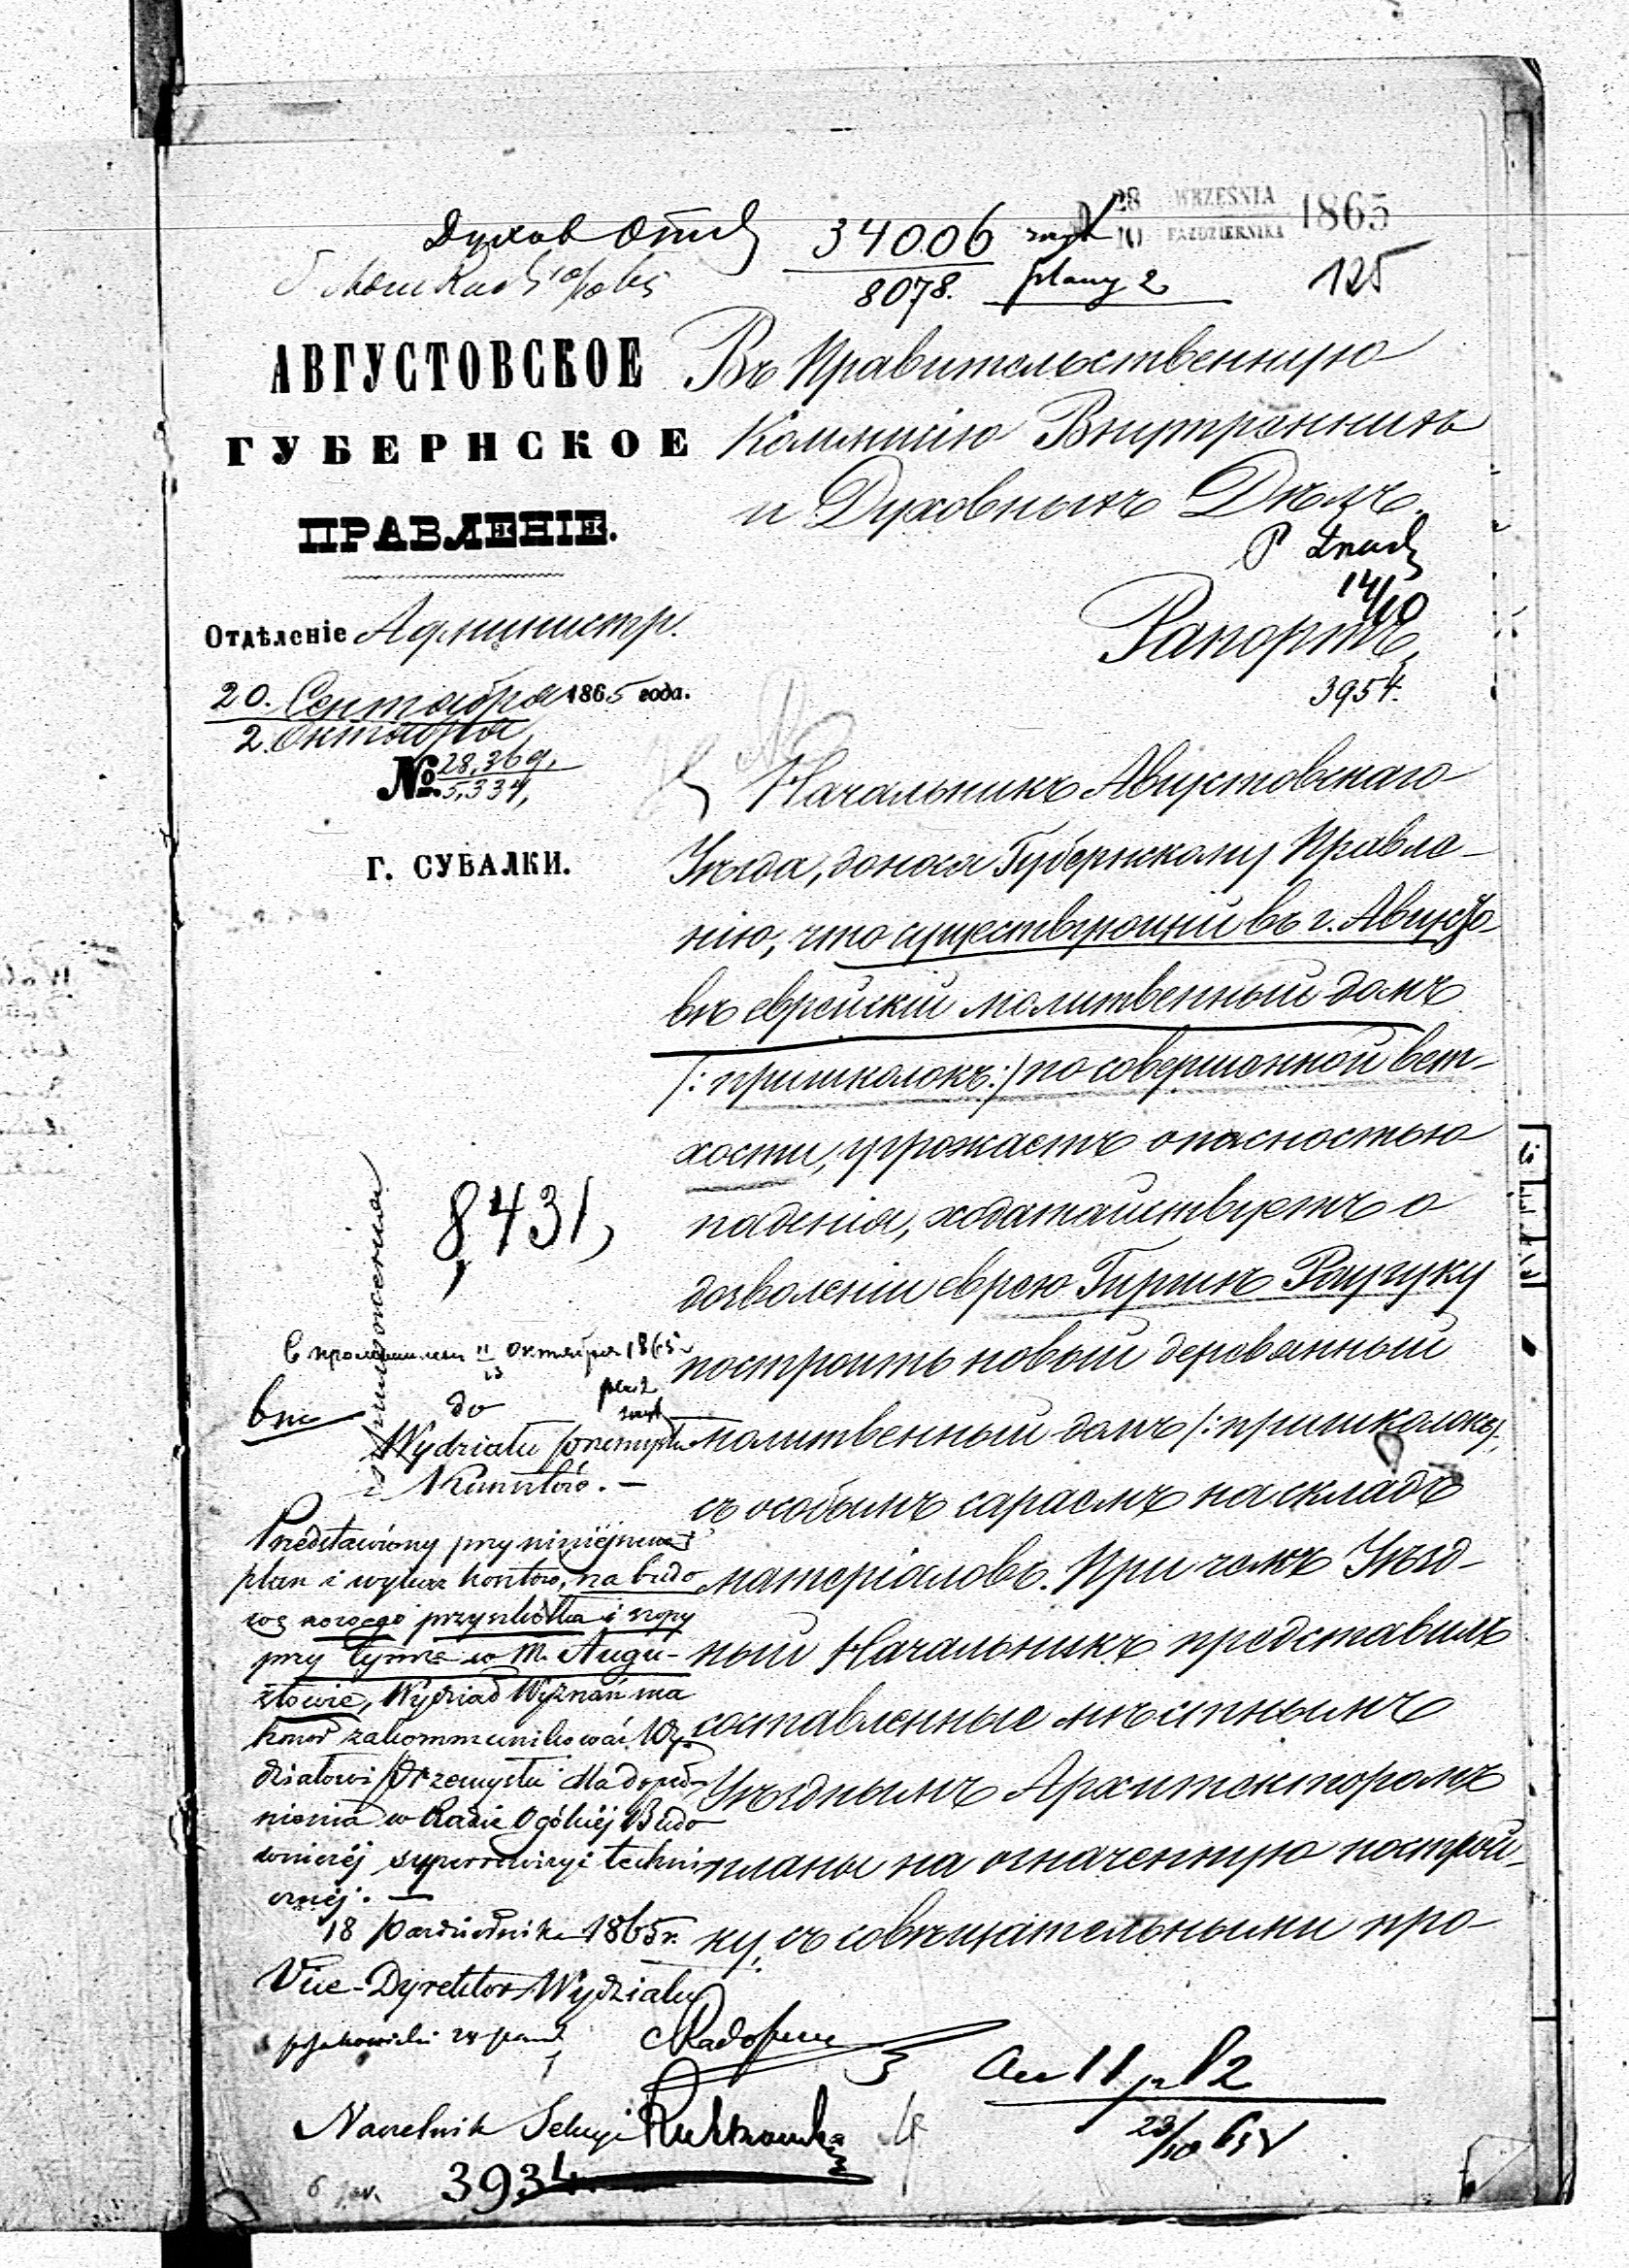 28 WRZEŚNIA
10 PAŹDZIERNIKA 1865
Духов Отд
34006
8078.
plany 2
125
АВГУСТОВСКОЕ
ГУБЕРНСКОЕ
ПРАВЛЕНІЕ.
Отдѣленіе Администр.
20. Сентября 1865 года.
2. Октября
№ 28,369,
5,334,
Г. СУВАЛКИ.
Въ Правительственную
Коммисію Внутреннихъ
и Духовныхъ Дѣлъ.
14/10
Рапортъ,
3954.
Начальникъ Августовскаго
Уѣзда, донося Губернскому Правле-
нію, что существующій въ г. Августо-
вѣ еврейскій молитвенный домъ
/:пришколокъ:/ по совершенной вет-
хости, угрожаетъ опасностью
паденія, ходатайствуетъ о
дозволеніи еврею Гиршѣ Раугуку
построить новый деревянный
молитвенный домъ /:пришколокъ/,
съ особымъ сараемъ на складъ
матеріаловъ. При чемъ Уѣзд-
ный Начальникъ представилъ
составленные мѣстнымъ
Уѣзднымъ Архитекторомъ
планы на означенную построй-
ку, съ совѣщательными про-
8431,
Октября 1865
do
Wydziału Przemysłu
i Kunsztów. —
Przedstawiony przy niniejszem
plan i wykaz kosztów, na budo
wę nowego przyszkółka i szopy
przy tymże w M. Augu-
stowie, Wydział Wyznań ma
honor zakommunikować Wy-
działowi Przemysłu dla dopeł-
nienia w Radzie Ogólnej Budo
wniczej superrewizyi techni-
cznej. —
18 Października 1865 r.
Vice-Dyrektor Wydziału
Naczelnik Sekcyi
23/10 65 r
3934